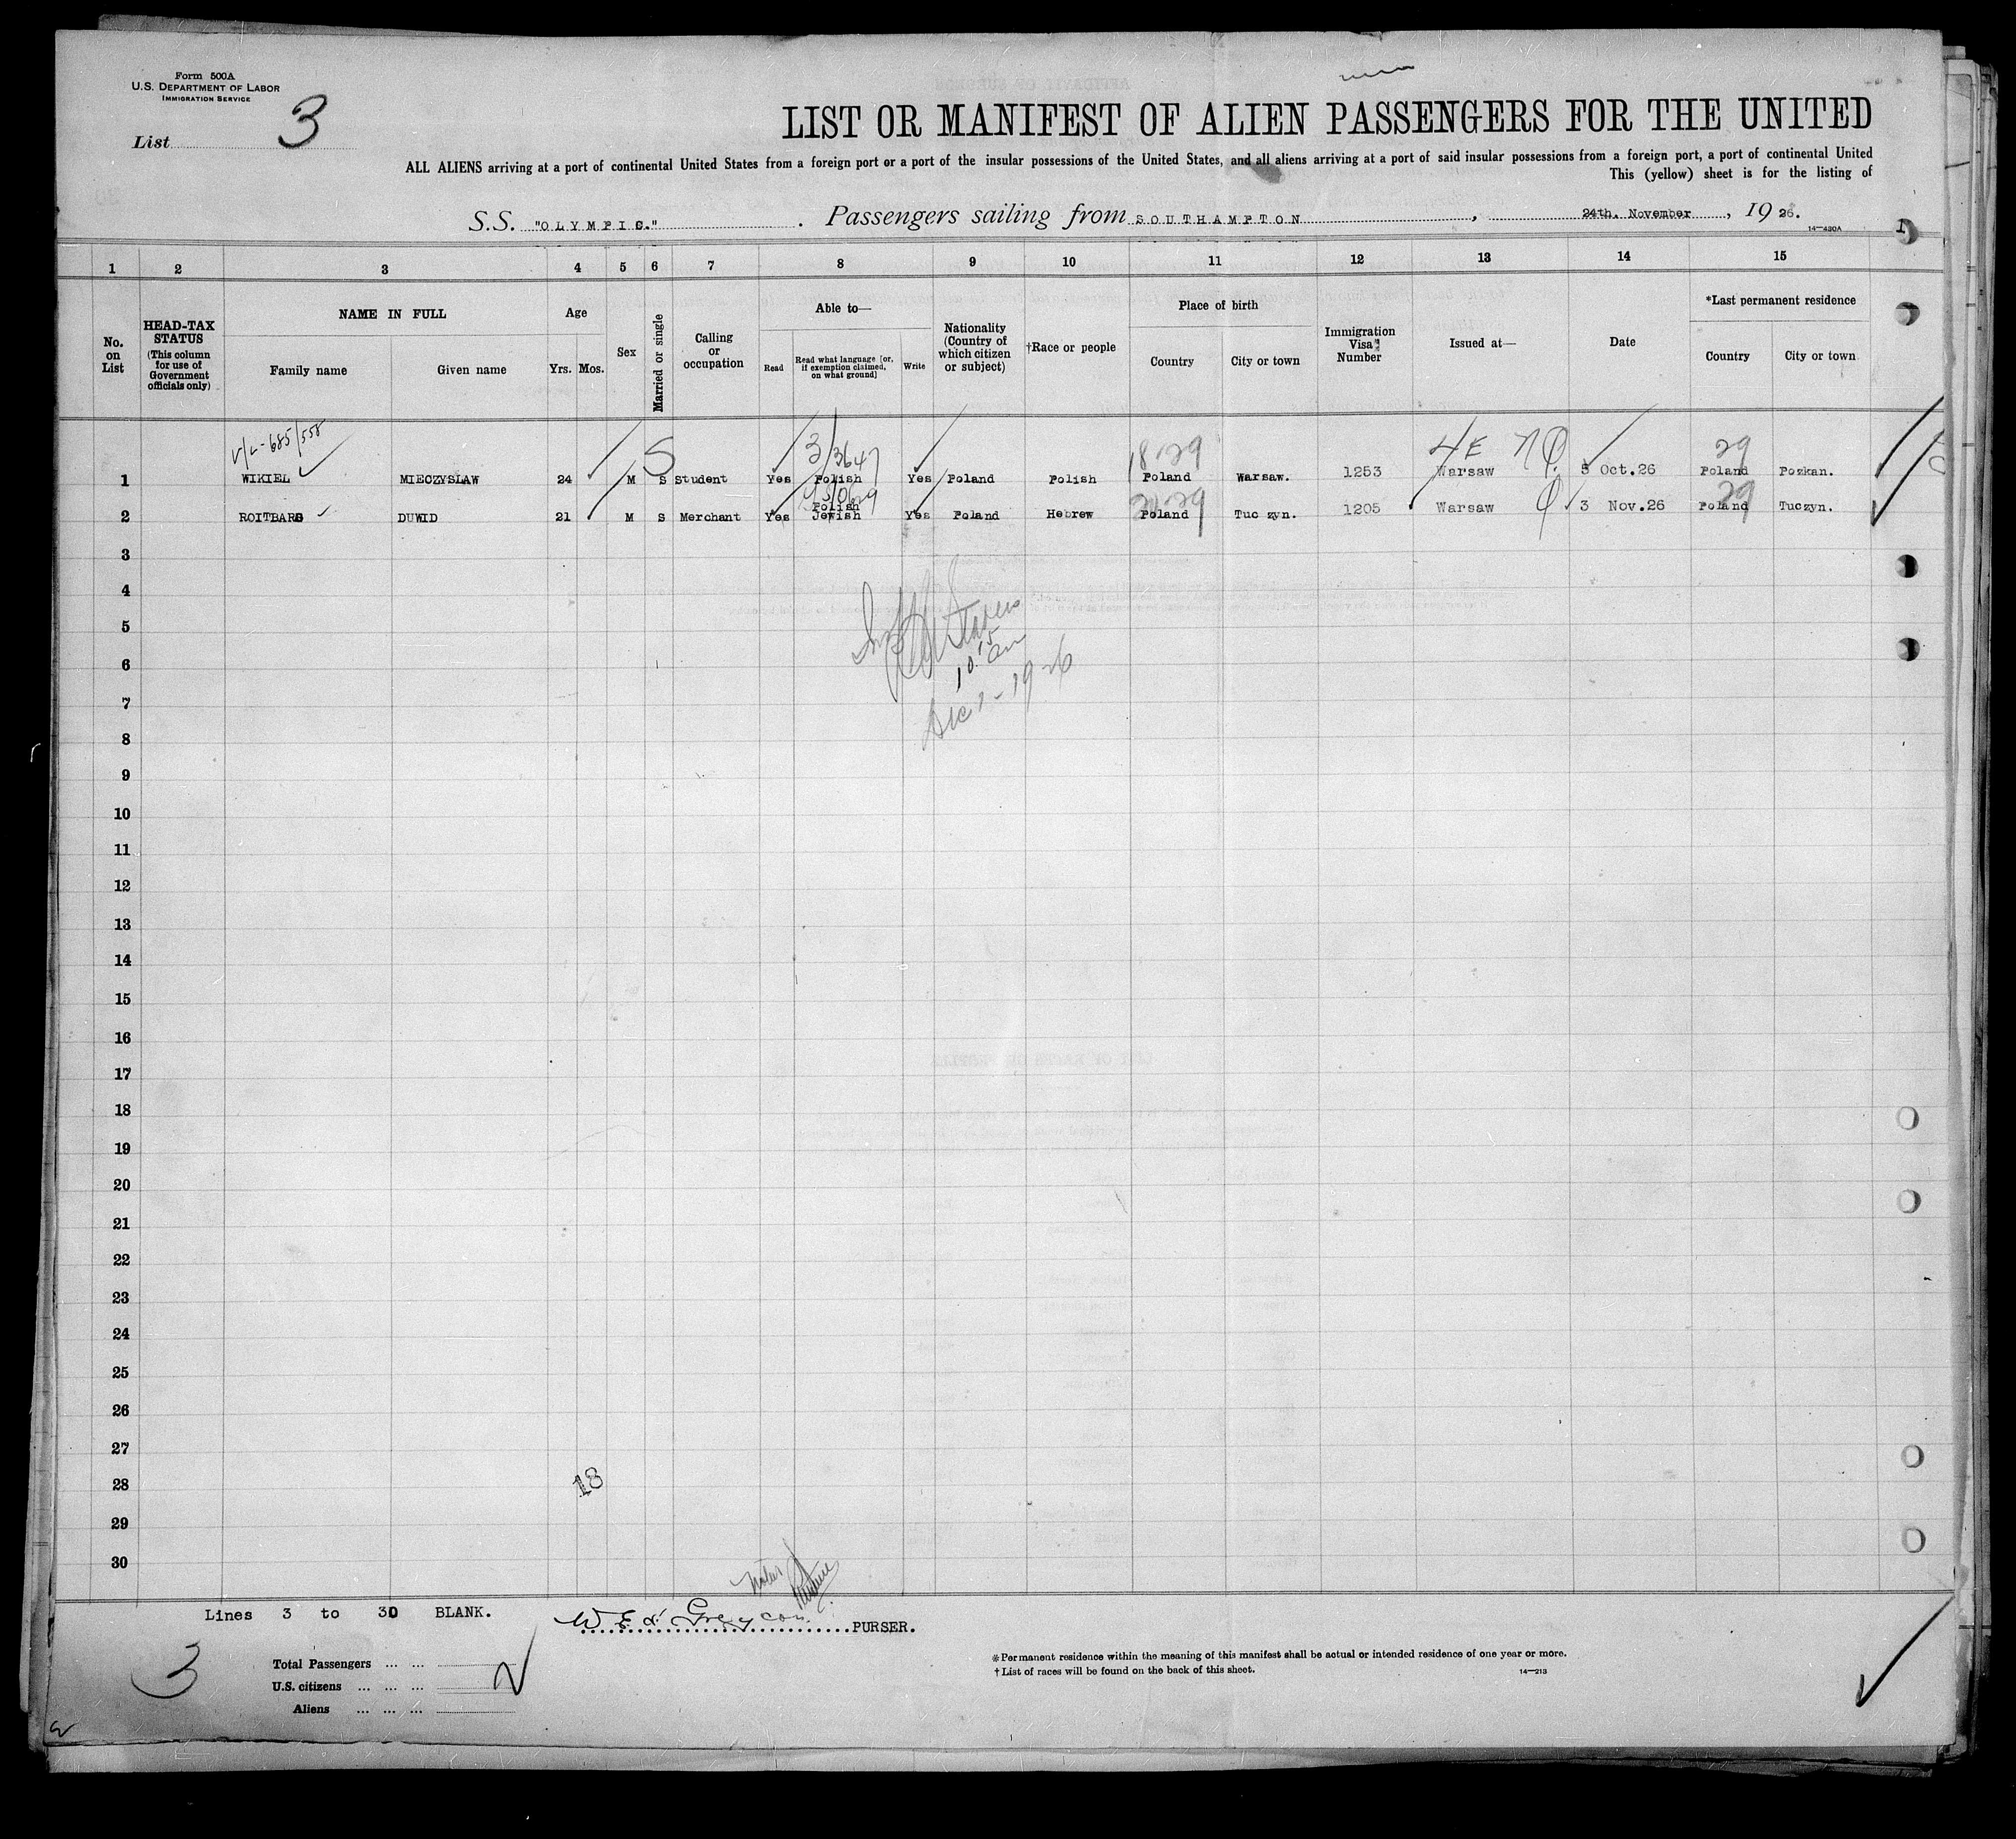 Form 500A
U.S. DEPARTMENT OF LABOR
IMMIGRATION SERVICE
List 3
LIST OR MANIFEST OF ALIEN PASSENGERS FOR THE UNITED
ALL ALIENS arriving at a port of continental United States from a foreign port or a port of the insular possessions of the United States, and all aliens arriving at a port of said insular possessions from a foreign port, a port of continental United
This (yellow) sheet is for the listing of
S.S. "OLYMPIC." . Passengers sailing from SOUTHAMPTON , 24th. November , 19 26.
14—430A
1 2 3 4 5 6 7 8 9 10 11 12 13 14 15
No. on List
HEAD-TAX STATUS
(This column for use of Government officials only)
NAME IN FULL
Family name Given name
Age
Yrs. Mos.
Sex
Married or single
Calling or occupation
Able to—
Read
Read what language [or, if exemption claimed, on what ground]
Write
Nationality (Country of which citizen or subject)
†Race or people
Place of birth
Country City or town
Immigration Visa Number
Issued at—
Date
*Last permanent residence
Country City or town
v/L-685/558 3/3647 18-29 4E 29
1 WIKIEL MIECZYSLAW 24 M S Student Yes Polish Yes Poland Polish Poland Warsaw. 1253 Warsaw 5 Oct.26 Poland Pozkan.
2 ROITBARG DUWID 21 M S Merchant Yes Polish Jewish Yes Poland Hebrew Poland Tuczyn. 1205 Warsaw 3 Nov.26 Poland Tuczyn.
29
3
4
5
6
10.15 am
Dec 1-1926
7
8
9
10
11
12
13
14
15
16
17
18
19
20
21
22
23
24
25
26
27
28
18
29
30
Lines 3 to 30 BLANK.
PURSER.
3
Total Passengers ... ...
U.S. citizens ... ... ...
Aliens ... ... ...
*Permanent residence within the meaning of this manifest shall be actual or intended residence of one year or more.
†List of races will be found on the back of this sheet.
14—213